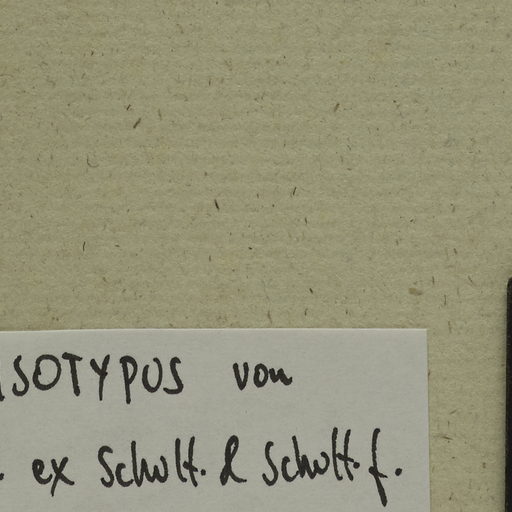 ISOTYPUS von
. ex Schult. & Schult. f.